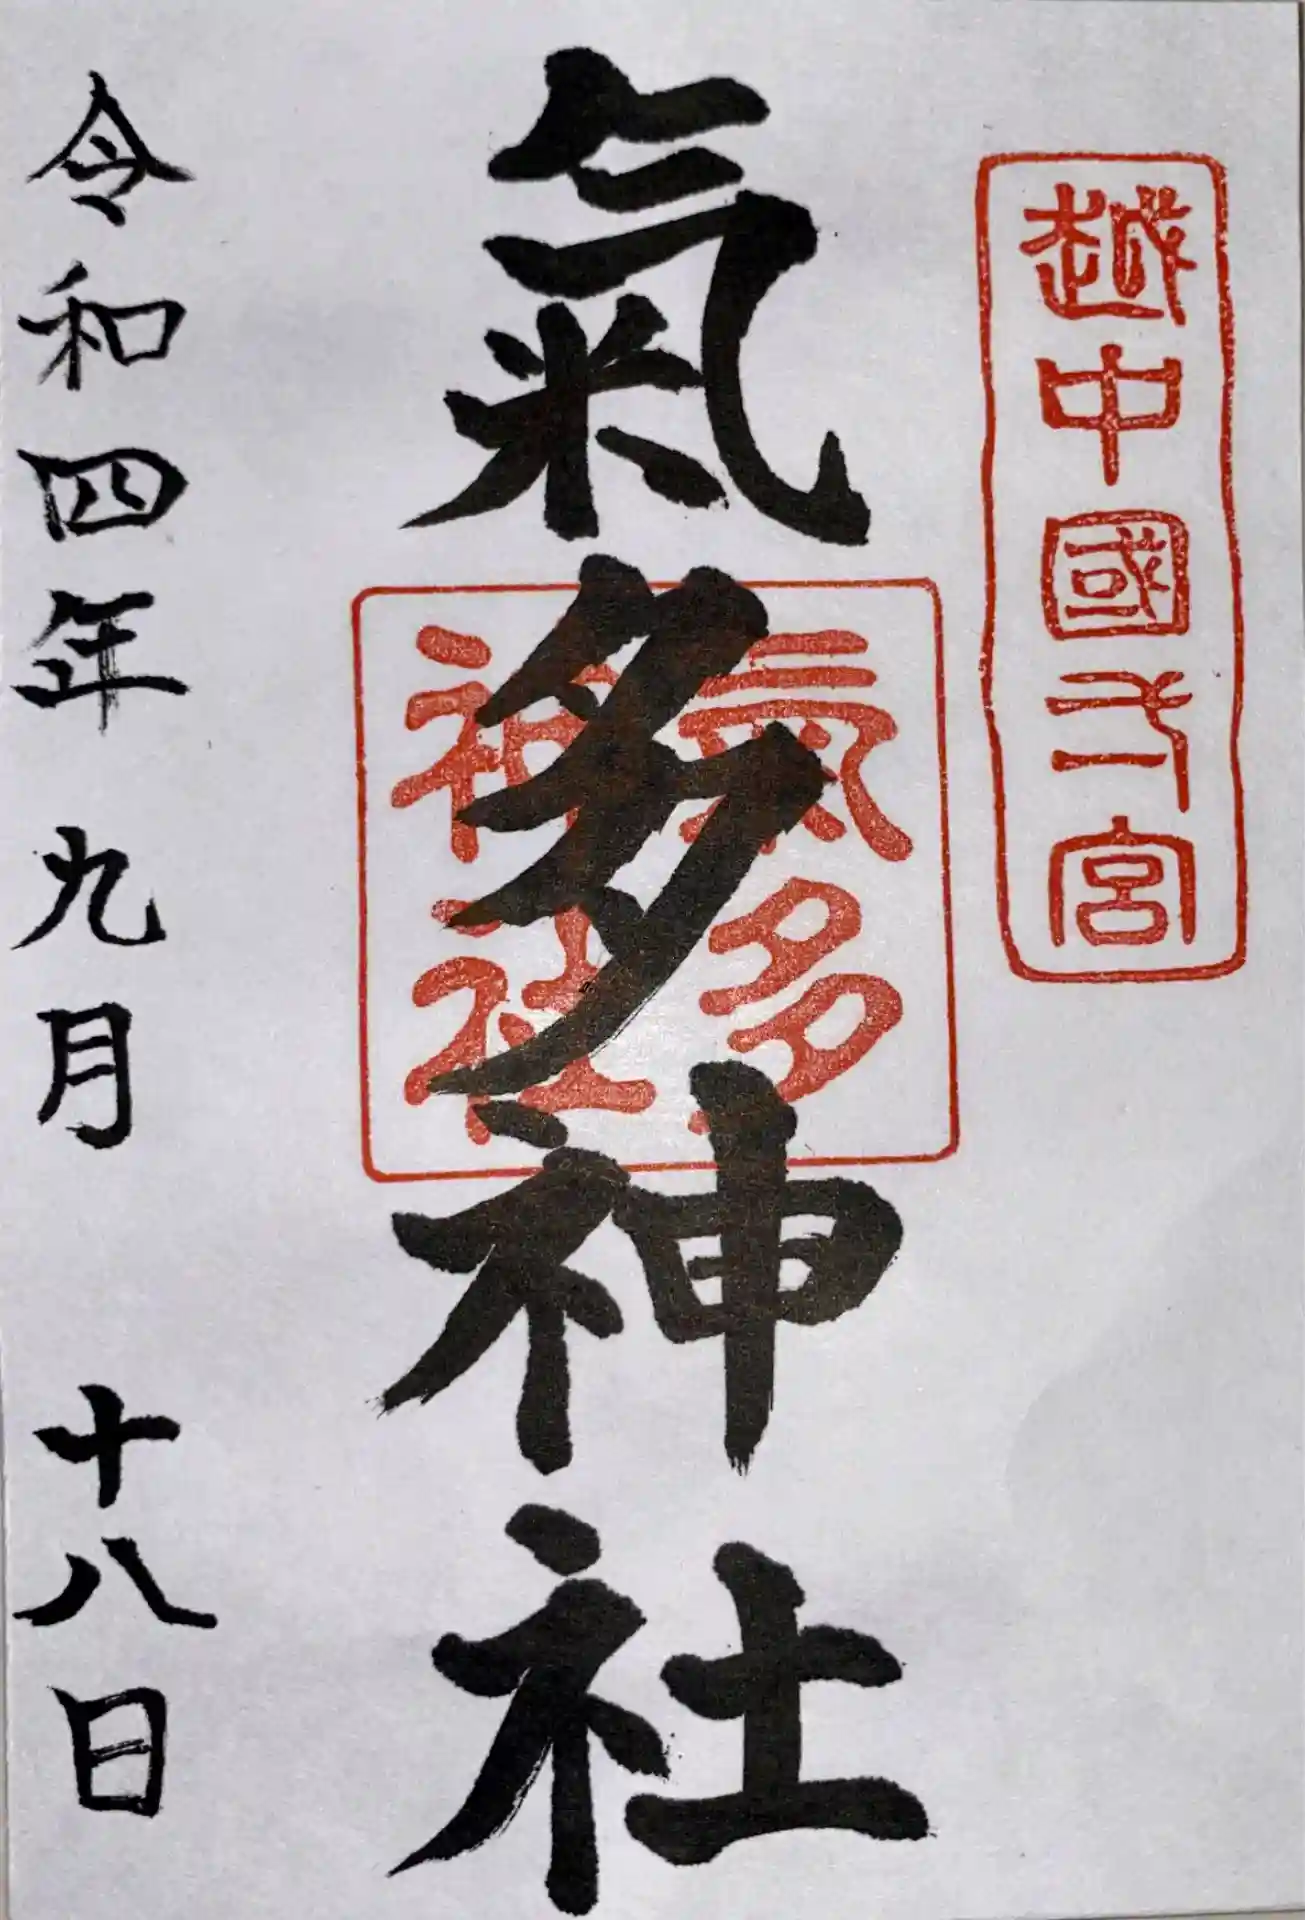 越中國一宮
氣多神社
氣多
神社
令和四年九月十八日